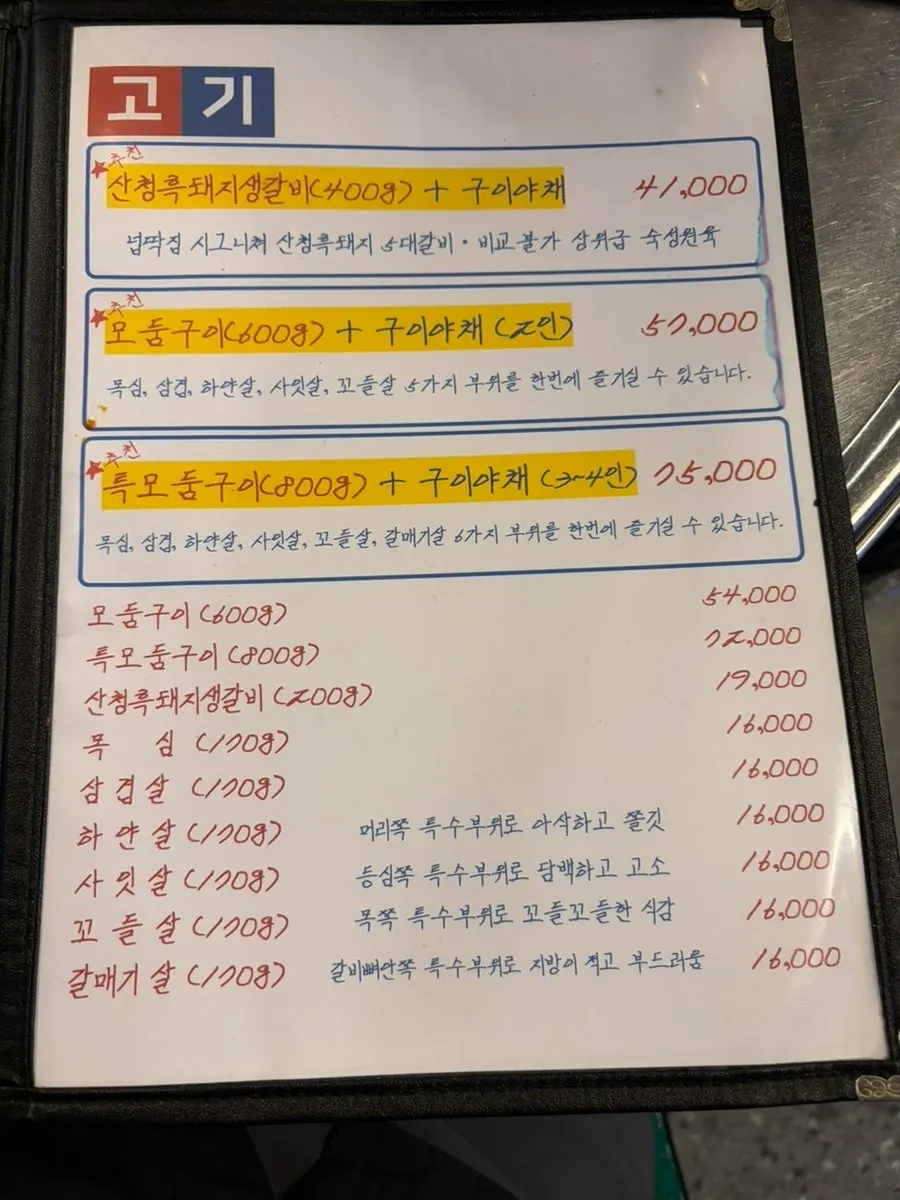 고기
추천
산청흑돼지생갈비(400g) + 구이야채 41,000
넙딱집 시그니처 산청흑돼지 5대갈비 · 비교불가 상위급 숙성원육
추천
모둠구이(600g) + 구이야채 (2인) 57,000
목심, 삼겹, 하얀살, 사잇살, 꼬들살 5가지 부위를 한번에 즐기실 수 있습니다.
추천
특모둠구이(800g) + 구이야채 (3~4인) 75,000
목심, 삼겹, 하얀살, 사잇살, 꼬들살, 갈매기살 6가지 부위를 한번에 즐기실 수 있습니다.
모둠구이(600g) 54,000
특모둠구이(800g) 72,000
산청흑돼지생갈비(200g) 19,000
목 심 (170g) 16,000
삼겹살 (170g) 16,000
하얀살(170g) 머리쪽 특수부위로 아삭하고 쫄깃 16,000
사잇살(170g) 등심쪽 특수부위로 담백하고 고소 16,000
꼬들살(170g) 목쪽 특수부위로 꼬들꼬들한 식감 16,000
갈매기살(170g) 갈비뼈안쪽 특수부위로 지방이 적고 부드러움 16,000